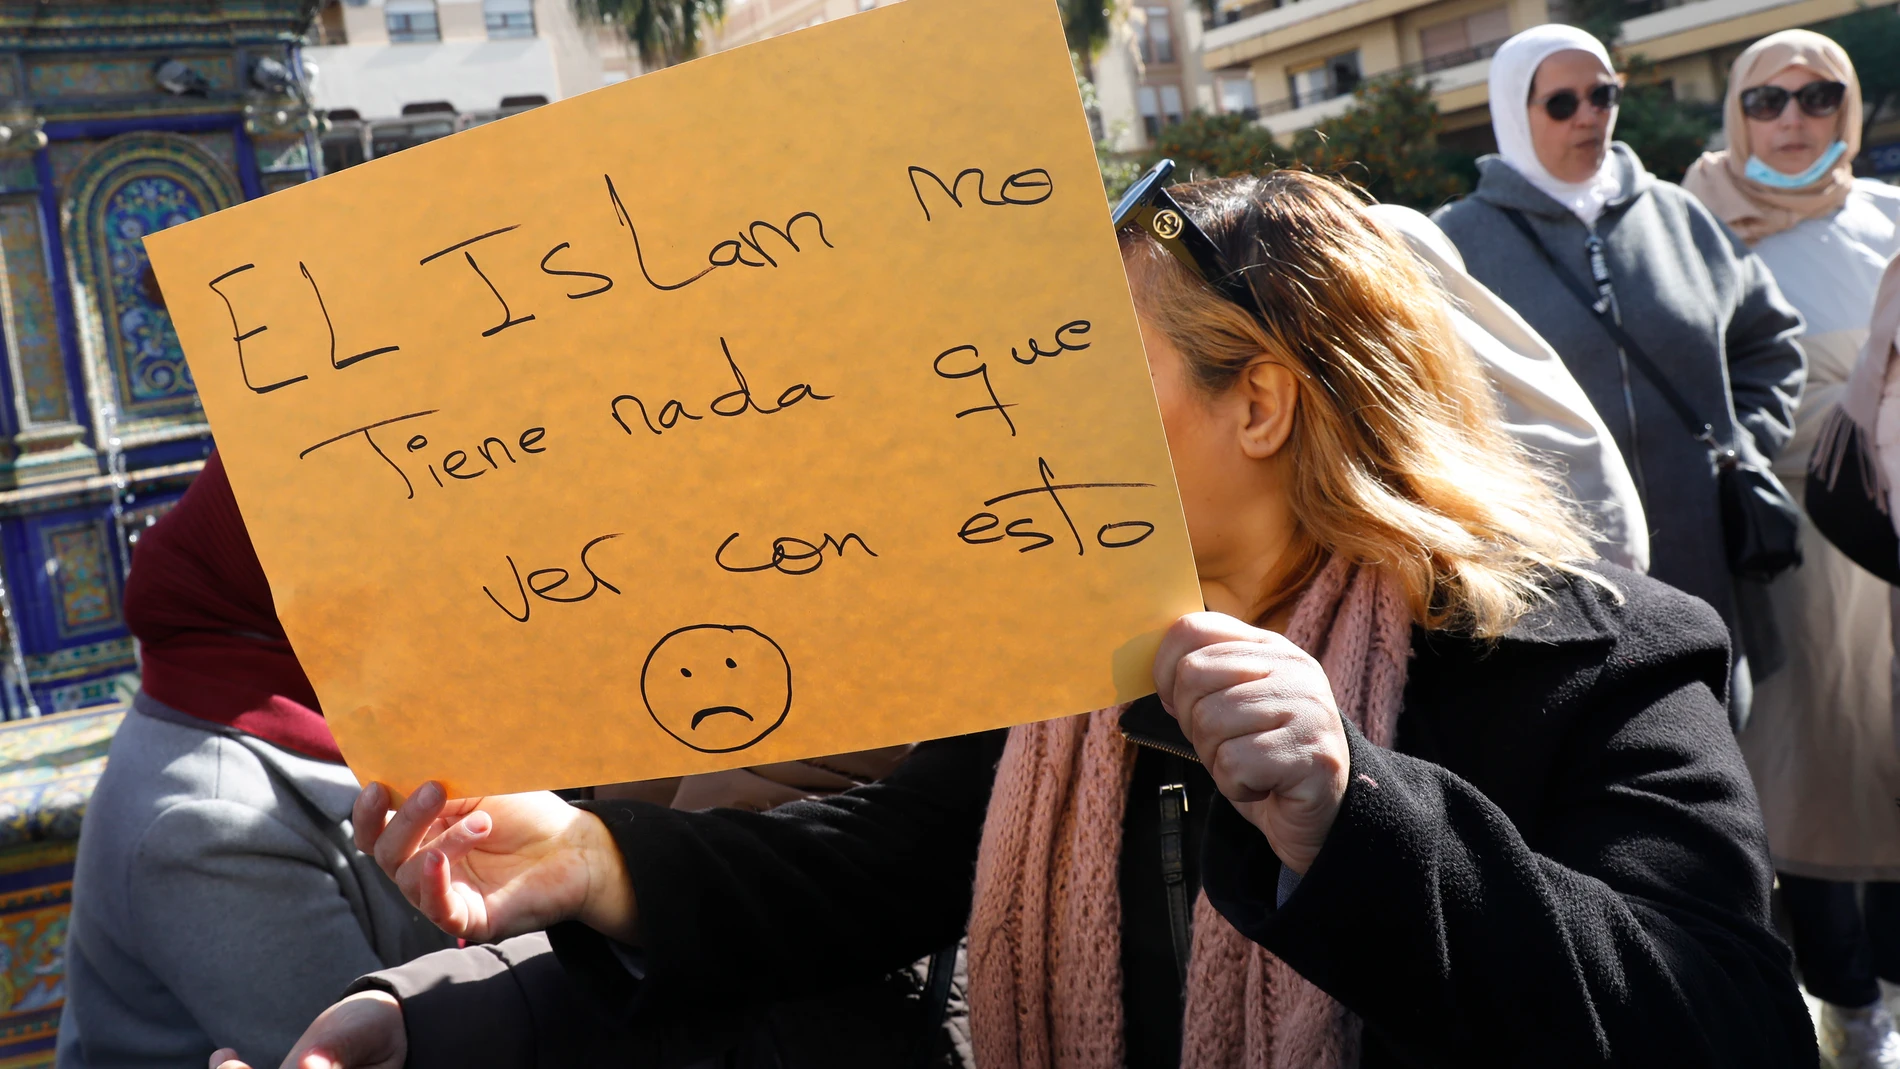 EL IsLam no
Tiene nada que
ver con esto